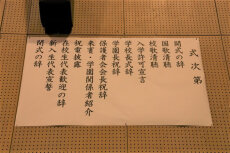 式次第
開式の辞
国歌清聴
校歌清聴
入学許可宣言
学校長式辞
学園長祝辞
保護者会会長祝辞
来賓・学園関係者紹介
祝電披露
在校生代表歓迎の辞
新入生代表宣誓
閉式の辞